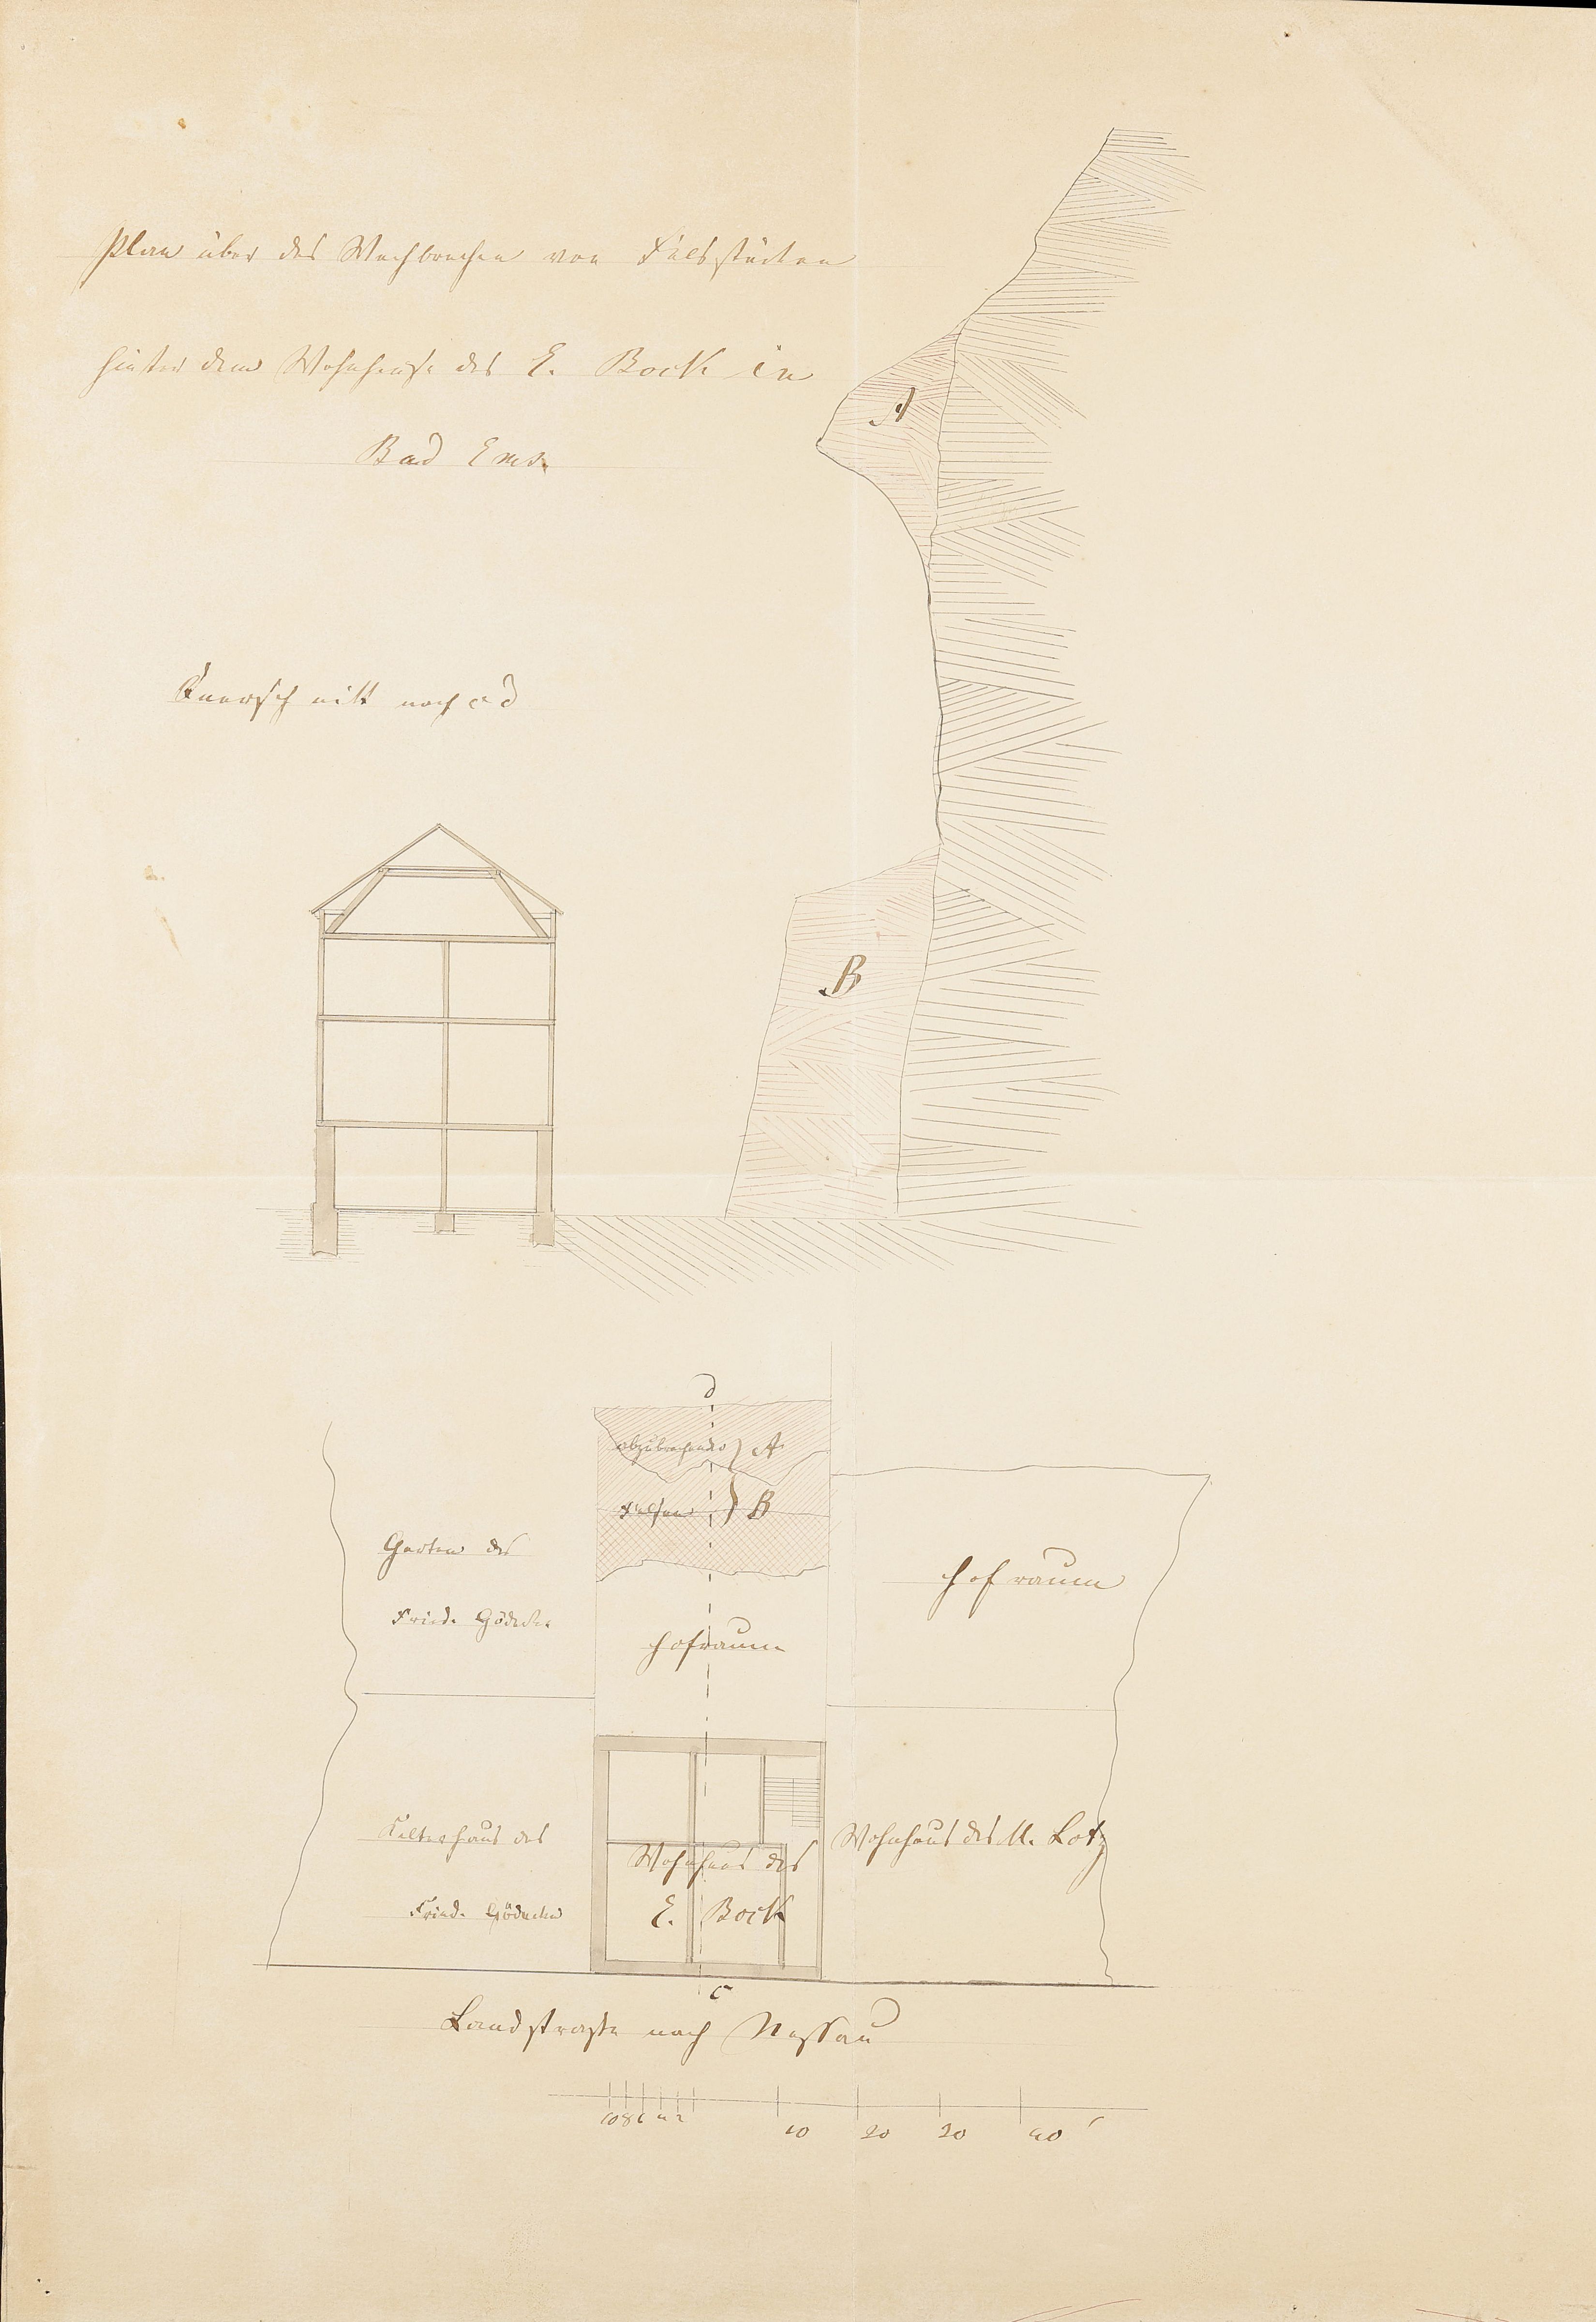 Plan über das Wegbrechen von Felsstücken
hinter dem Wohnhause des E. Bock in
Bad Ems.
A
Querschnitt nach c d
B
d
abzubrechende A
Felsen B
Garten des
Fried. Gödecke
Hofraum
Hofraum
Kelterhaus des
Fried. Gödecke
Wohnhaus des
E. Bock
Wohnhaus des M. Lotz
c
Landstraße nach Nassau
10 8 6 4 2 10 20 30 40'